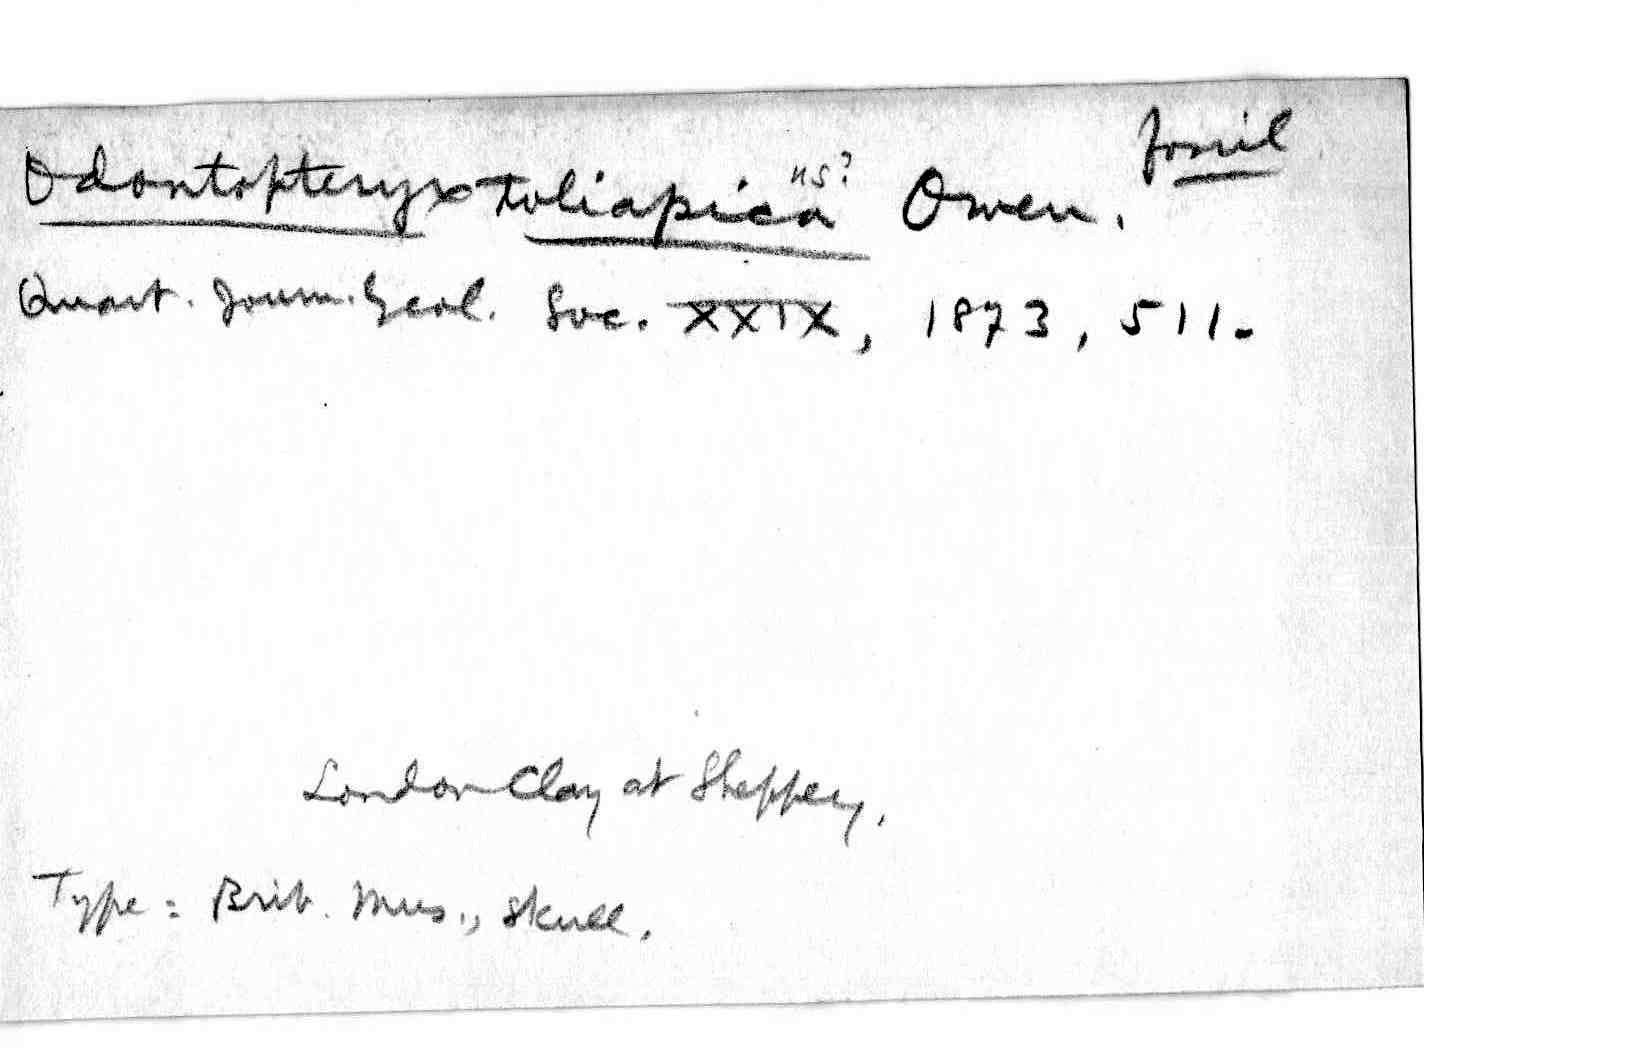 fossil
Odontopteryx toliapica us? Owen.
Quart. Journ. Geol. Soc. XXIX, 1873, 511.
London Clay at Sheppey.
Type: Brit. Mus., skull.